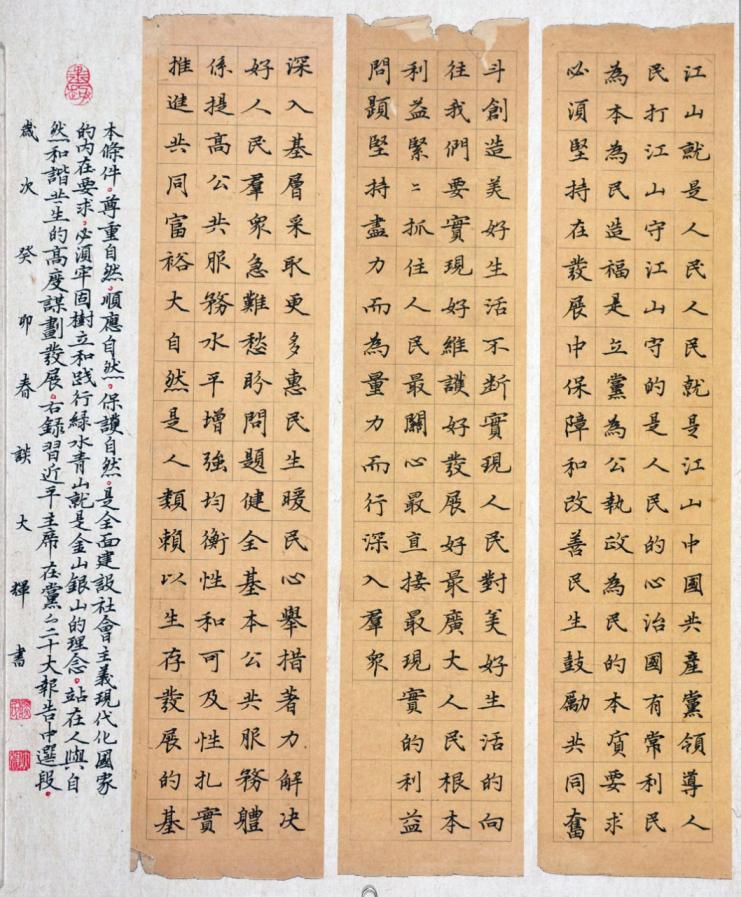 江山就是人民人民就是江山中國共產黨領導人
民打江山守江山守的是人民的心治國有常利民
為本為民造福是立黨為公執政為民的本質要求
必須堅持在發展中保障和改善民生鼓勵共同奮
斗創造美好生活不斷實現人民對美好生活的向
往我們要實現好維護好發展好最廣大人民根本
利益緊〻抓住人民最關心最直接最現實的利益
問題堅持盡力而為量力而行深入羣眾
深入基層采取更多惠民生暖民心舉措著力解决
好人民羣眾急難愁盼問題健全基本公共服務體
係提高公共服務水平增強均衡性和可及性扎實
推進共同富裕大自然是人類賴以生存發展的基
本條件。尊重自然。順應自然。保護自然。是全面建設社會主義現代化國家
的內在要求。必須牢固樹立和践行綠水青山就是金山銀山的理念。站在人與自
然和諧共生的高度謀劃發展。右錄習近平主席在黨〻二十大報告中選段。
歲次癸卯春談大輝書